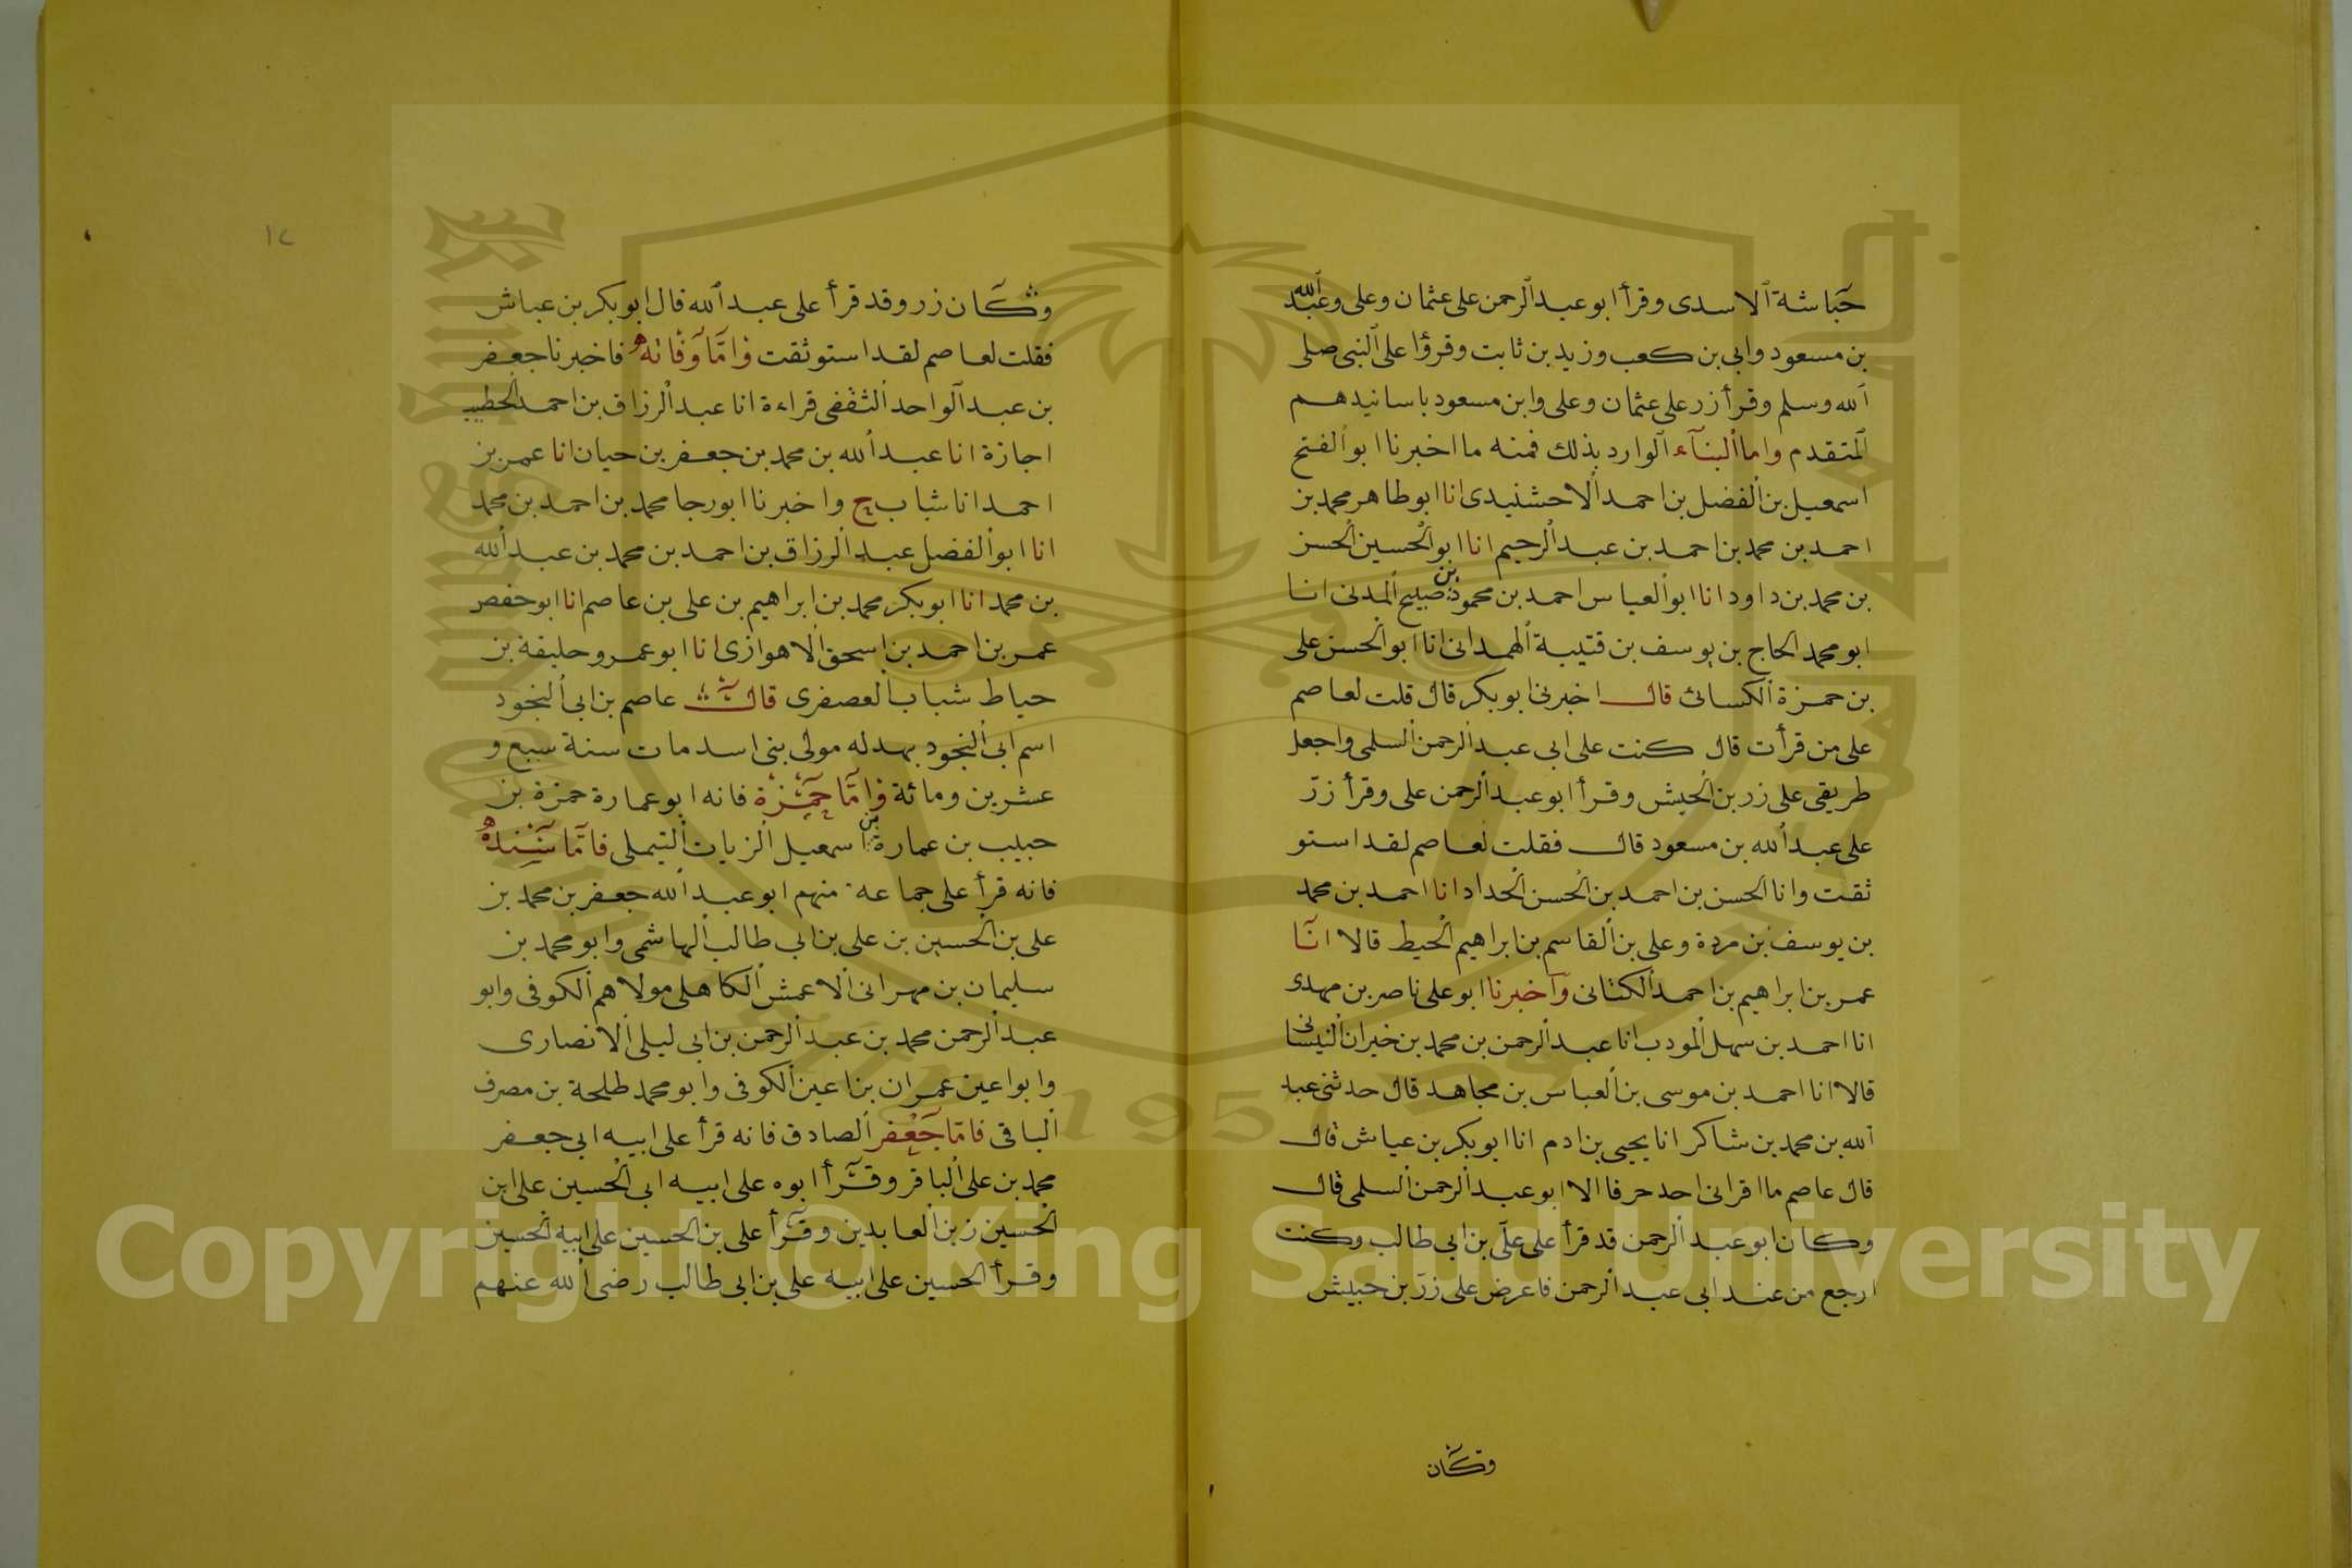 حباشة الاسدى وقرأ ابو عبد الرحمن على عثمان وعلى وعبد الله
بن مسعود وابى بن كعب وزيد بن ثابت وقرؤا على النبى صلى
الله وسلم وقرأ زر على عثمان وعلى وابن مسعود باسانيدهم
المتقدم واما البناء الوارد بذلك فمنه ما اخبرنا ابو الفتح
اسمعيل بن الفضل بن احمد الاحشنيدى انا ابو طاهر محمد بن
احمد بن محمد بن احمد بن عبد الرحيم انا ابو الحسين الحسن
بن محمد بن داود انا ابو العباس احمد بن محمود بن صبيح المدنى انا
ابو محمد الحاج بن يوسف بن قتيبة الهمدانى انا ابو الحسن على
بن حمزة الكسائى قال اخبرنى ابو بكر قال قلت لعاصم
على من قرأت قال كنت على ابى عبد الرحمن السلمى واجعل
طريقى على زر بن الحبيش وقرأ ابو عبد الرحمن على وقرأ زر
على عبد الله بن مسعود قال فقلت لعاصم لقد استو
ثقت وانا الحسن بن احمد بن الحسن الحداد انا احمد بن محمد
بن يوسف بن مردة وعلى بن القاسم بن ابراهيم الحيط قالا انا
عمر بن ابراهيم بن احمد الكتانى واخبرنا ابو على ناصر بن مهدى
انا احمد بن سهل المودب انا عبد الرحمن بن محمد بن خيران
قالا انا احمد بن موسى بن العباس بن مجاهد قال حدثنى عبد
الله بن محمد بن شاكر انا يحيى بن ادم انا ابو بكر بن عياش قال
قال عاصم ما اقرانى احد حرفا الا ابو عبد الرحمن السلمى قال
وكان ابو عبد الرحمن قد قرأ على على بن ابى طالب وكنت
ارجع من عند ابى عبد الرحمن فاعرض على زر بن حبيش
وكان
١٢
وكان زر وقد قرأ على عبد الله قال ابو بكر بن عباش
فقلت لعاصم لقد استوثقت واما وفاته فاخبرنا جعفر
بن عبد الواحد الثقفى قراءة انا عبد الرزاق بن احمد الخطيب
اجازة انا عبد الله بن محمد بن جعفر بن حيان انا عمر بن
احمد انا شباب ح واخبرنا ابو رجا محمد بن احمد بن محمد
انا ابو الفضل عبد الرزاق بن احمد بن محمد بن عبد الله
بن محمد انا ابو بكر محمد بن ابراهيم بن على بن عاصم انا ابو حفص
عمر بن احمد بن اسحق الاهوازى انا ابو عمرو خليفة بن
حياط شباب العصفرى قال عاصم بن ابى النجود
اسم ابى النجود بهدله مولى بنى اسد مات سنة سبع و
عشرين ومائة واما حمزة فانه ابو عمارة حمزة بن
حبيب بن عمارة بن اسمعيل الزيات التيملى فاما سنده
فانه قرأ على جماعه منهم ابو عبد الله جعفر بن محمد بن
على بن الحسين بن على بن ابى طالب الهاشمى وابو محمد بن
سليمان بن مهرانى الاعمش الكاهلى مولاهم الكوفى وابو
عبد الرحمن محمد بن عبد الرحمن بن ابى ليلى الانصارى
وابو اعين عمران بن اعين الكوفى وابو محمد طلحة بن مصرف
الباقى فاما جعفر الصادق فانه قرأ على ابيه ابى جعفر
محمد بن على الباقر وقرأ ابوه على ابيه ابى الحسين على ابن
الحسين زين العابدين وقرأ على بن الحسين على ابيه الحسين
وقرأ الحسين على ابيه على بن ابى طالب رضى الله عنهم
Copyright © King Saud University